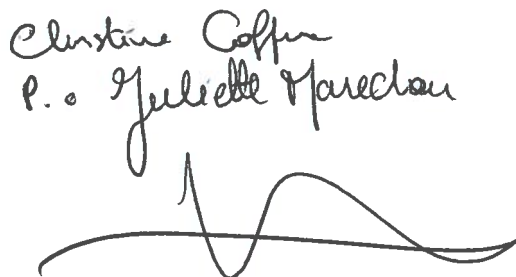 Christine Coffin
P.o Juliette Marechau